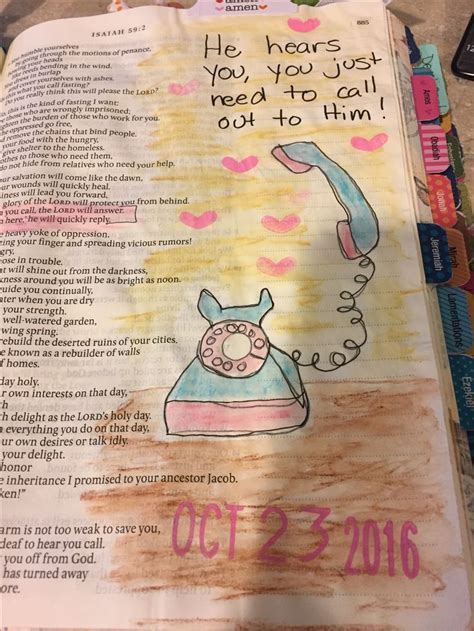 amen
ISAIAH 59:2
885
He hears
you, you just
need to call
out to Him!
humble yourselves
by going through the motions of penance,
bowing your heads
like reeds bending in the wind.
dress in burlap
and cover yourselves with ashes.
this what you call fasting?
Do you really think this will please the LORD?
this is the kind of fasting I want:
those who are wrongly imprisoned;
lighten the burden of those who work for you.
the oppressed go free,
and remove the chains that bind people.
your food with the hungry,
give shelter to the homeless.
clothes to those who need them,
do not hide from relatives who need your help.
your salvation will come like the dawn,
your wounds will quickly heal.
godliness will lead you forward,
glory of the LORD will protect you from behind.
you call, the LORD will answer.
here,' he will quickly reply.
heavy yoke of oppression.
pointing your finger and spreading vicious rumors!
hungry,
those in trouble.
light will shine out from the darkness,
darkness around you will be as bright as noon.
guide you continually,
water when you are dry
your strength.
well-watered garden,
flowing spring.
rebuild the deserted ruins of your cities.
be known as a rebuilder of walls
of homes.
day holy.
your own interests on that day,
with delight as the LORD's holy day.
in everything you do on that day,
your own desires or talk idly.
your delight.
honor
the inheritance I promised to your ancestor Jacob.
spoken!"
arm is not too weak to save you,
deaf to hear you call.
you off from God.
has turned away
more.
OCT 23 2016
Amos
Obadiah
Jonah
Jeremiah
Lamentations
Ezekiel